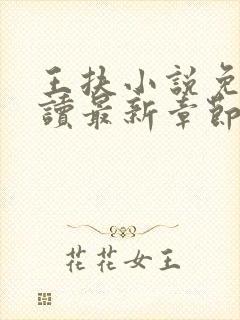 王抉小説免
讀最新章節
花花女王